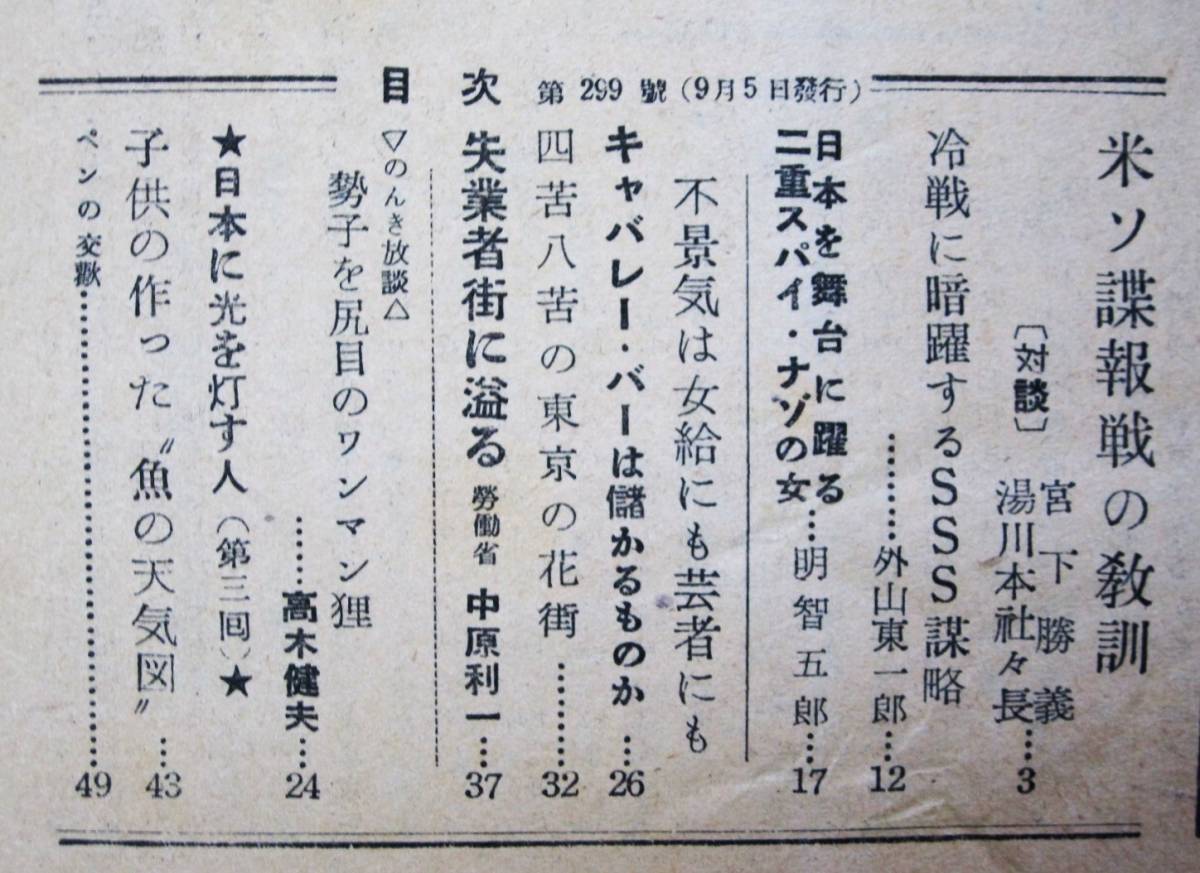 目次 第299號（9月5日發行）
米ソ諜報戦の教訓
〔対談〕
宮下勝義
湯川本社々長……3
冷戦に暗躍するSSS謀略
……外山東一郎…12
日本を舞台に躍る
二重スパイ・ナゾの女…明智五郎…17
不景気は女給にも芸者にも
キャバレー・バーは儲かるものか…26
四苦八苦の東京の花街……32
失業者街に溢る 勞働省 中原利一…37
▽のんき放談△
勢子を尻目のワンマン狸
……高木健夫…24
★日本に光を灯す人（第三回）★
子供の作った〝魚の天気図〟…43
ペンの交歡……49